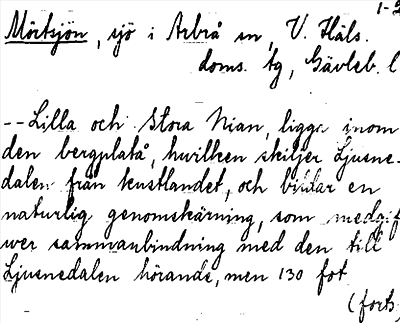 1-2
Mörtsjön, sjö i Arbrå sn, V. Häls.
doms. tg, Gävleb. l
-- Lilla och Stora Nian, ligga inom
den bergplatå, hvilken skiljer Ljusne-
dalen från kustlandet, och bildar en
naturlig genomskärning, som medgif
wer sammanbindning med den till
Ljusnedalen hörande, men 130 fot
(forts.